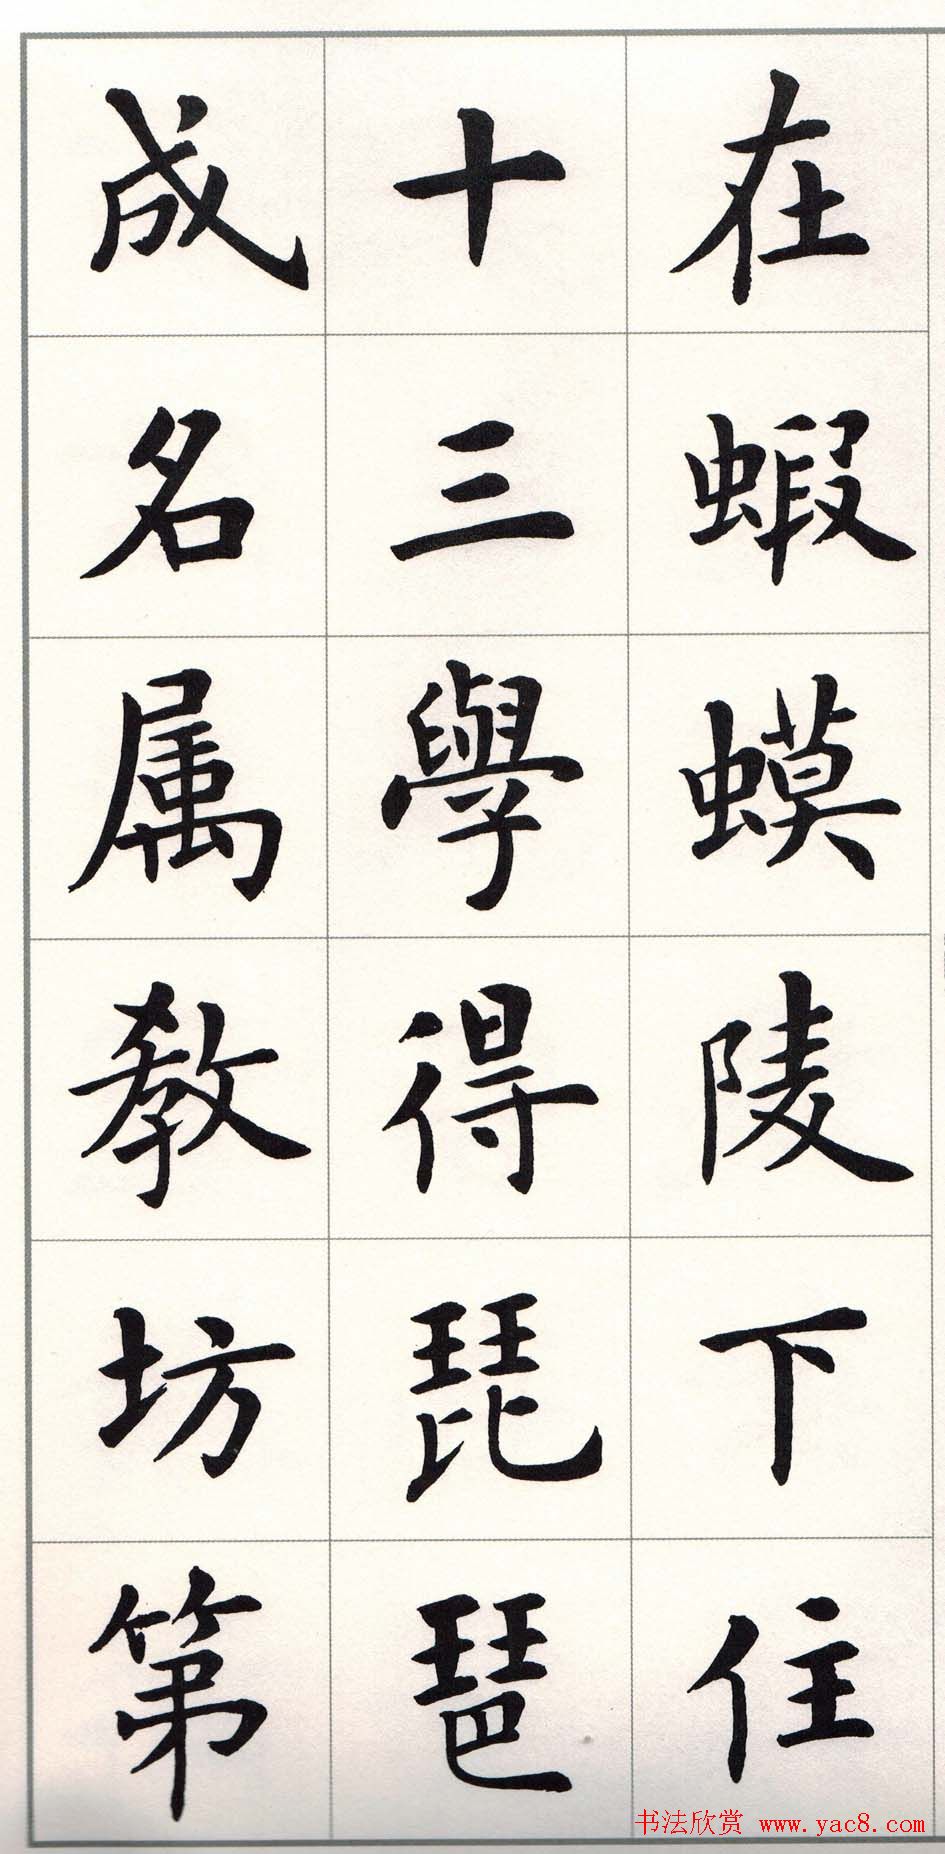 在蝦蟆陵下住
十三學得琵琶
成名属教坊第
书法欣赏 www.yac8.com